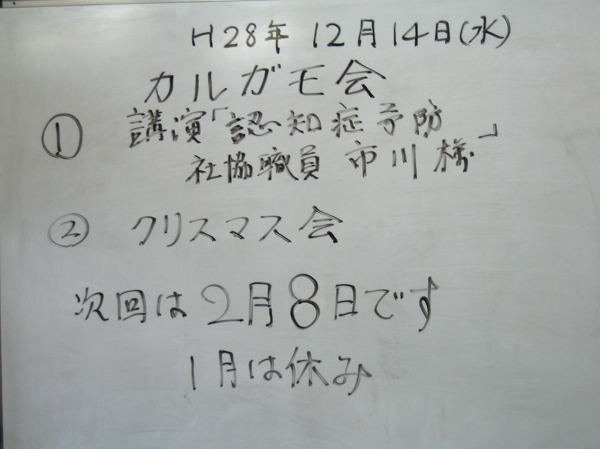 H28年 12月14日(水)
カルガモ会
① 講演「認知症予防
社協職員 市川様」
② クリスマス会
次回は2月8日です
1月は休み